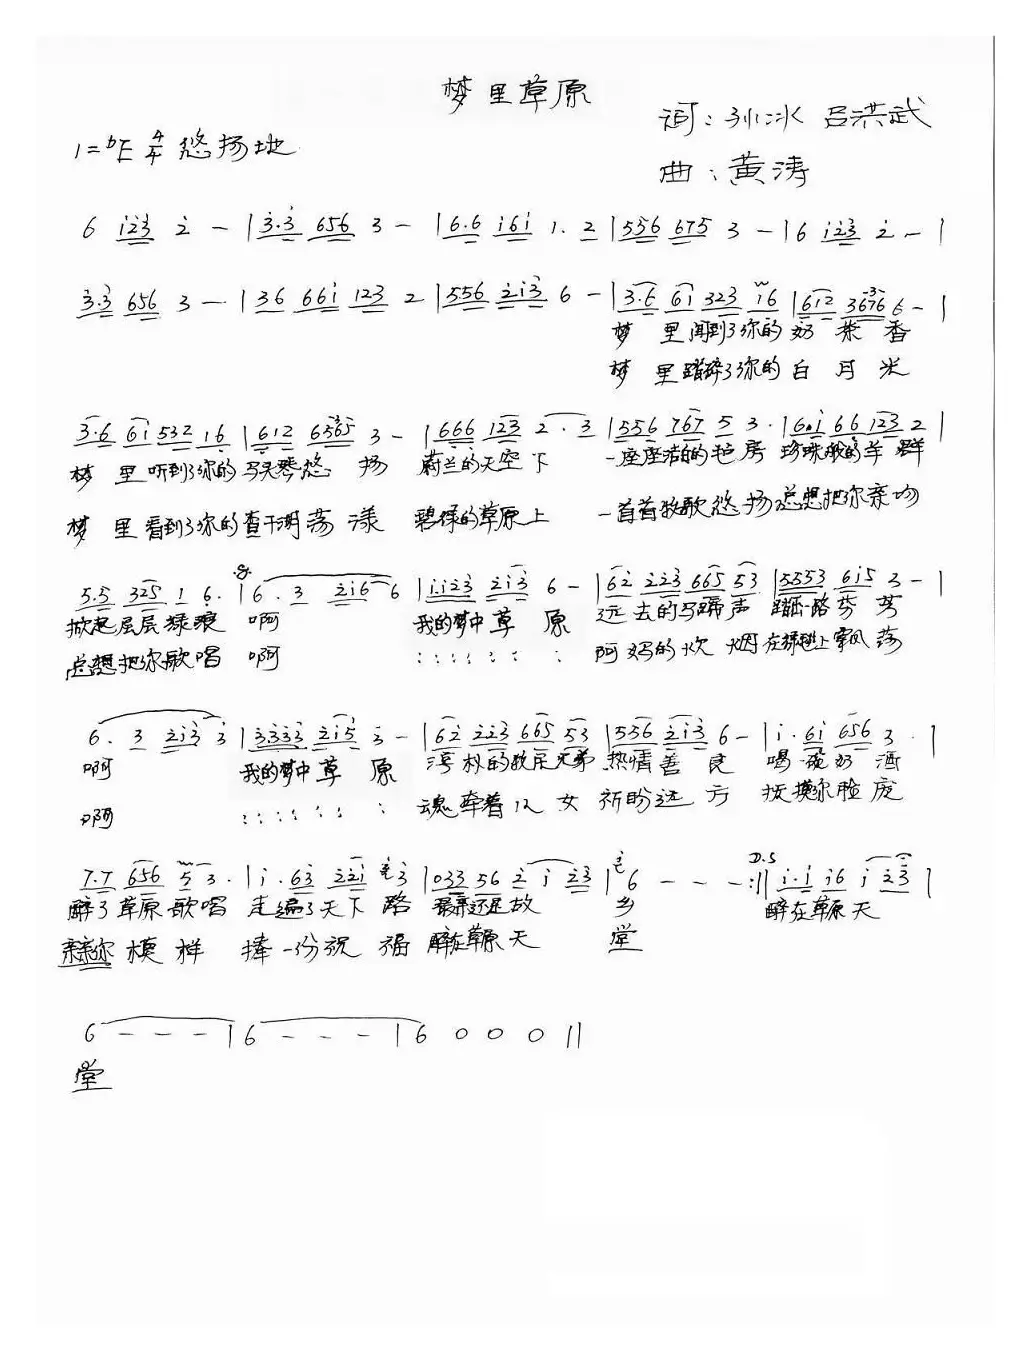 梦里草原
词：孙冰 吕洪武
1=ᵇE 4/4 悠扬地
曲：黄涛
6 i23 2 - | 3.3 656 3 - | 6.6 i6i 1. 2 | 556 675 3 - | 6 i23 2 - |
3.3 656 3 - | 36 66i 123 2 | 556 2i3 6 - | 3.6 6i 323 i6 | 612 3676 6 - |
梦 里闻到了你的奶 茶 香
梦 里踏碎了你的白 月 光
3.6 6i 532 16 | 612 6565 3 - | 666 123 2 . 3 | 556 767 5 3 . | 6.i 66 123 2 |
梦 里听到了你的马头琴悠 扬 蔚兰的天空下 一座座洁白的毡房 珍珠般的羊群
梦 里看到了你的查干湖荡漾 碧绿的草原上 一首首牧歌悠扬总想把你亲吻
5.5 325 1 6. | 6. 3 2i6 6 | i.i23 2i3 6 - | 62 223 665 53 | 5553 6i5 3 - |
掀起层层绿浪 啊 我的梦中草 原 远去的马蹄声 踏出一路芬芳
总想把你歌唱 啊 : : : : : : 阿妈的炊 烟在 上 飘荡
6. 3 2i3 3 | 3.333 2i5 3 - | 62 223 665 53 | 536 2i3 6 - | i. 6i 656 3 . |
啊 我的梦中草 原 淳朴的牧民兄弟 热情善良 喝一碗奶 酒
啊 : : : : : : 魂牵着儿女祈盼远方 抚摸你脸庞
7.7 656 5 3. | i. 63 22i 3 | 033 56 2 i 23 | 6 - - - :|| D.S i.i i6 i 23 |
醉了草原歌唱 走遍了天下 路 最亲还是故 乡 醉在草原天
亲亲你模样 捧一份祝 福 醉在草原天 堂
6 - - - | 6 - - - | 6 0 0 0 ||
堂